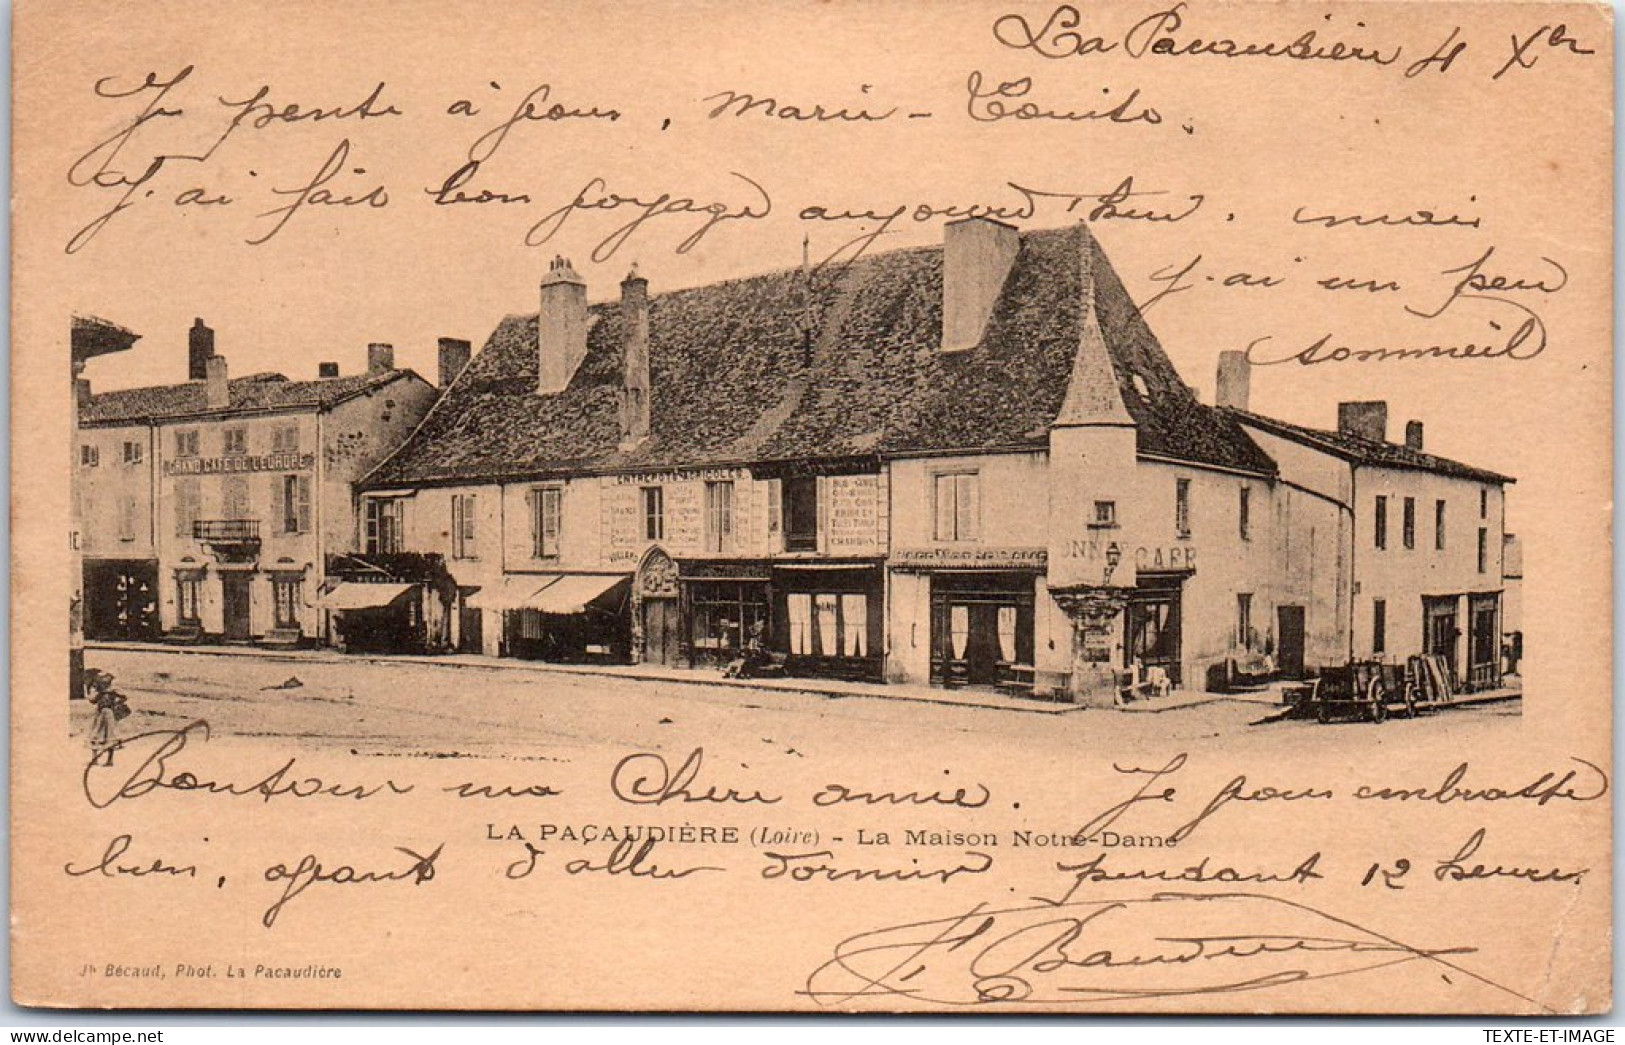 La Pacaudière 4 Xbr
Je pense à vous, Marie-Touite.
J'ai fait bon voyage aujourd'hui. mais
j'ai un peu
sommeil
GRAND CAFE DE L'EUROPE
ENTREPOTS AGRICOLES
CHARBON
Bonsoir ma Chère amie. Je vous embrasse
LA PACAUDIÈRE (Loire) - La Maison Notre-Dame
bien, avant d'aller dormir pendant 12 heures.
Jh Bécaud, Phot. La Pacaudière
TEXTE-ET-IMAGE